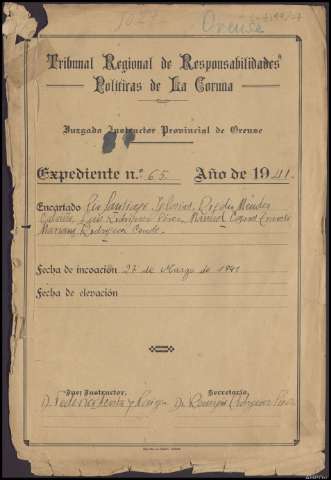 Orense
Tribunal Regional de Responsabilidades
Políticas de La Coruna
Juzgado Instructor Provincial de Orense
Expediente n.º 65 Año de 1941.
Encartado Pio Santiago Iglesias, Méndez
Luis Rodríguez Pérez, Manuel
Mariano Rodríguez Conde.
Fecha de incoación 27 de Marzo de 1941
Fecha de elevación
Juez Instructor, Secretario,
D. Federico y D.